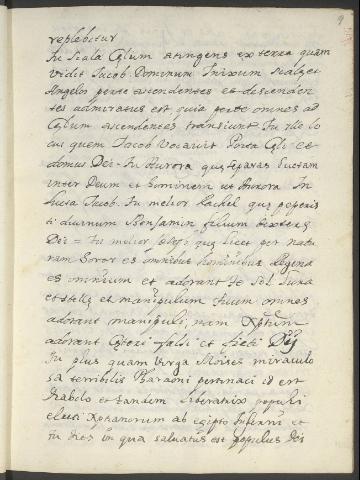 9
replebitur
Tu Scala Cęlum atingens ex terra quam
vidit Iacob. Dominum Inixum Scalę et
Angelos perte ascendentes et descenden
tes admiratus est quia perte omnes ad
Cęlum ascendentes transiunt Tu ille lo
cus quem Iacob vocavit Porta Cęli et
domus Dei = Tu Aurora quę
inter Deum et hominem ut Aurora In
lucta Iacob. Tu melior Rachel quę peperis
ti Benjamin filium dexterę
Dei = Tu melior quę licet per natu
ram Soror es omnibus hominibus Regina
es omnium et adorant te Sol Luna
et stellę et manipulum tuum omnes
adorant manipuli, nam Xptum
adorant Cęteri falsi et ficti Dij
Tu plus quam Virga Moises miraculo
sa terribilis Pharaoni pertinaci id est
Diabolo et tandem liberatrix populi
electi Xptianorum ab Egipto Inferni et
tu dies in qua salvatus est populus Dei